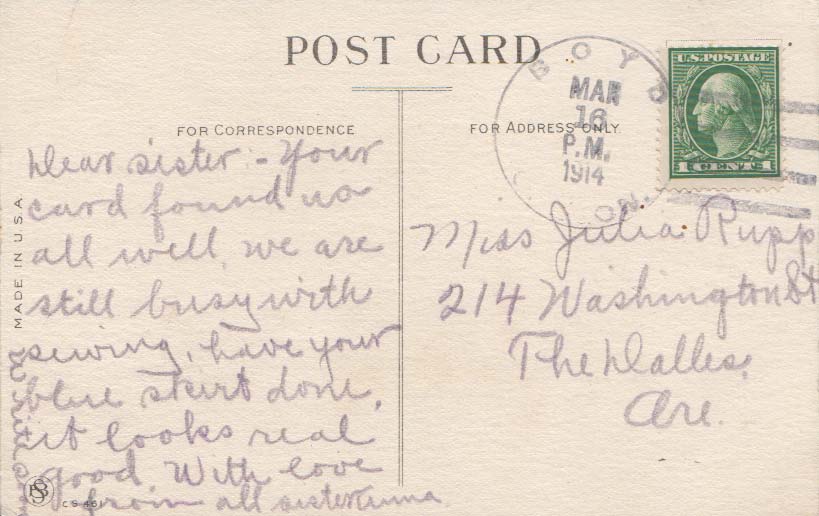 POST CARD
FOR CORRESPONDENCE
FOR ADDRESS ONLY
MADE IN U.S.A.
Dear sister - Your
card found us
all well we are
still busy with
sewing, have your
blue skirt done,
it looks real
good With love
from all sister Anna
BOYD
MAR
16
P.M.
1914
U.S. POSTAGE
1 CENTS 1
Miss Julia Rupp
214 Washington St
The Dalles,
Ore.
CS 461